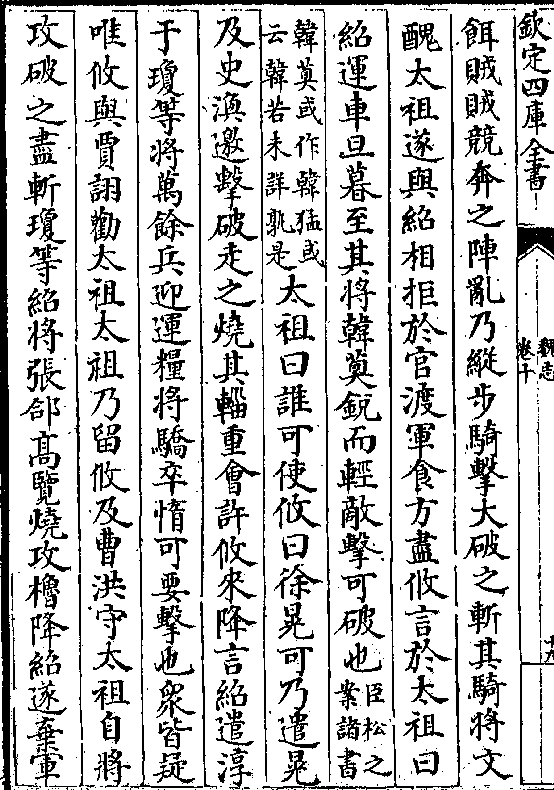 欽定四庫全書
魏志
卷十
十九
餌賊賊競奔之陣亂乃縱步騎擊大破之斬其騎將文
醜太祖遂與紹相拒於官渡軍食方盡攸言於太祖曰
紹運車旦暮至其將韓䔳銳而輕敵擊可破也臣松之案諸書
韓䔳或作韓猛或云韓若未詳孰是太祖曰誰可使攸曰徐晃可乃遣晃
及史渙邀擊破走之燒其輜重會許攸來降言紹遣淳
于瓊等將萬餘兵迎運糧將驕卒惰可要擊也衆皆疑
唯攸與賈詡勸太祖太祖乃留攸及曹洪守太祖自將
攻破之盡斬瓊等紹將張郃高覽燒攻櫓降紹遂棄軍